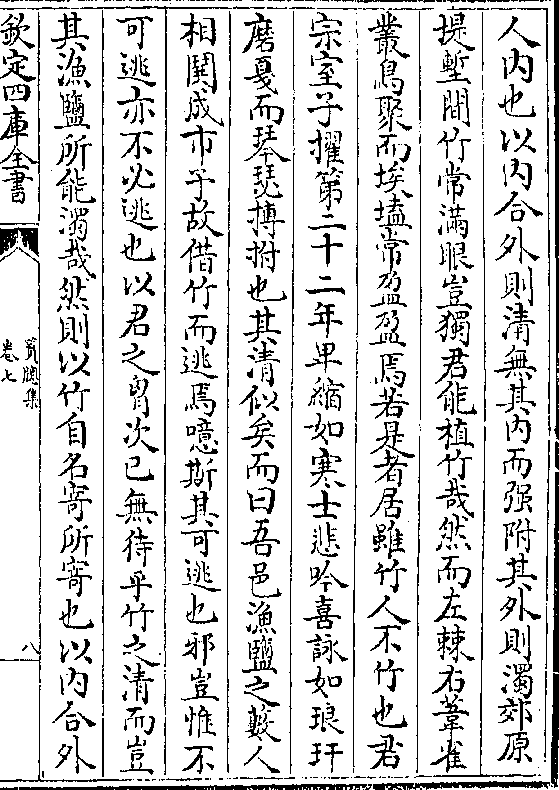 人内也以内合外則清無其内而强附其外則濁郊原
堤塹間竹常滿眼豈獨君能植竹哉然而左棘右葦雀
叢鳥聚而埃壒常盈盈焉若是者居雖竹人不竹也君
宗室子擢第二十二年卑縮如寒士悲吟喜詠如琅玕
磨戛而琴瑟摶拊也其清似矣而曰吾邑漁鹽之藪人
相鬭成市予故借竹而逃焉噫斯其可逃也邪豈惟不
可逃亦不必逃也以君之胷次已無待乎竹之清而豈
其漁鹽所能濁哉然則以竹自名寄所寄也以内合外
欽定四庫全書
卷七
八